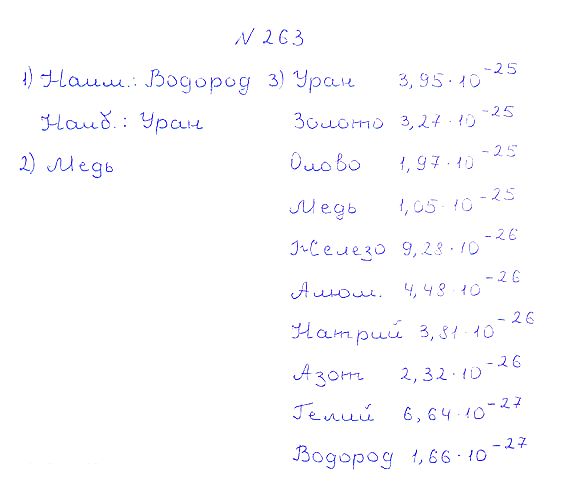 N 263
1) Наим.: Водород
Наиб.: Уран
2) Медь
3) Уран 3,95·10⁻²⁵
Золото 3,27·10⁻²⁵
Олово 1,97·10⁻²⁵
Медь 1,05·10⁻²⁵
Железо 9,28·10⁻²⁶
Алюм. 4,48·10⁻²⁶
Натрий 3,81·10⁻²⁶
Азот 2,32·10⁻²⁶
Гелий 6,64·10⁻²⁷
Водород 1,66·10⁻²⁷